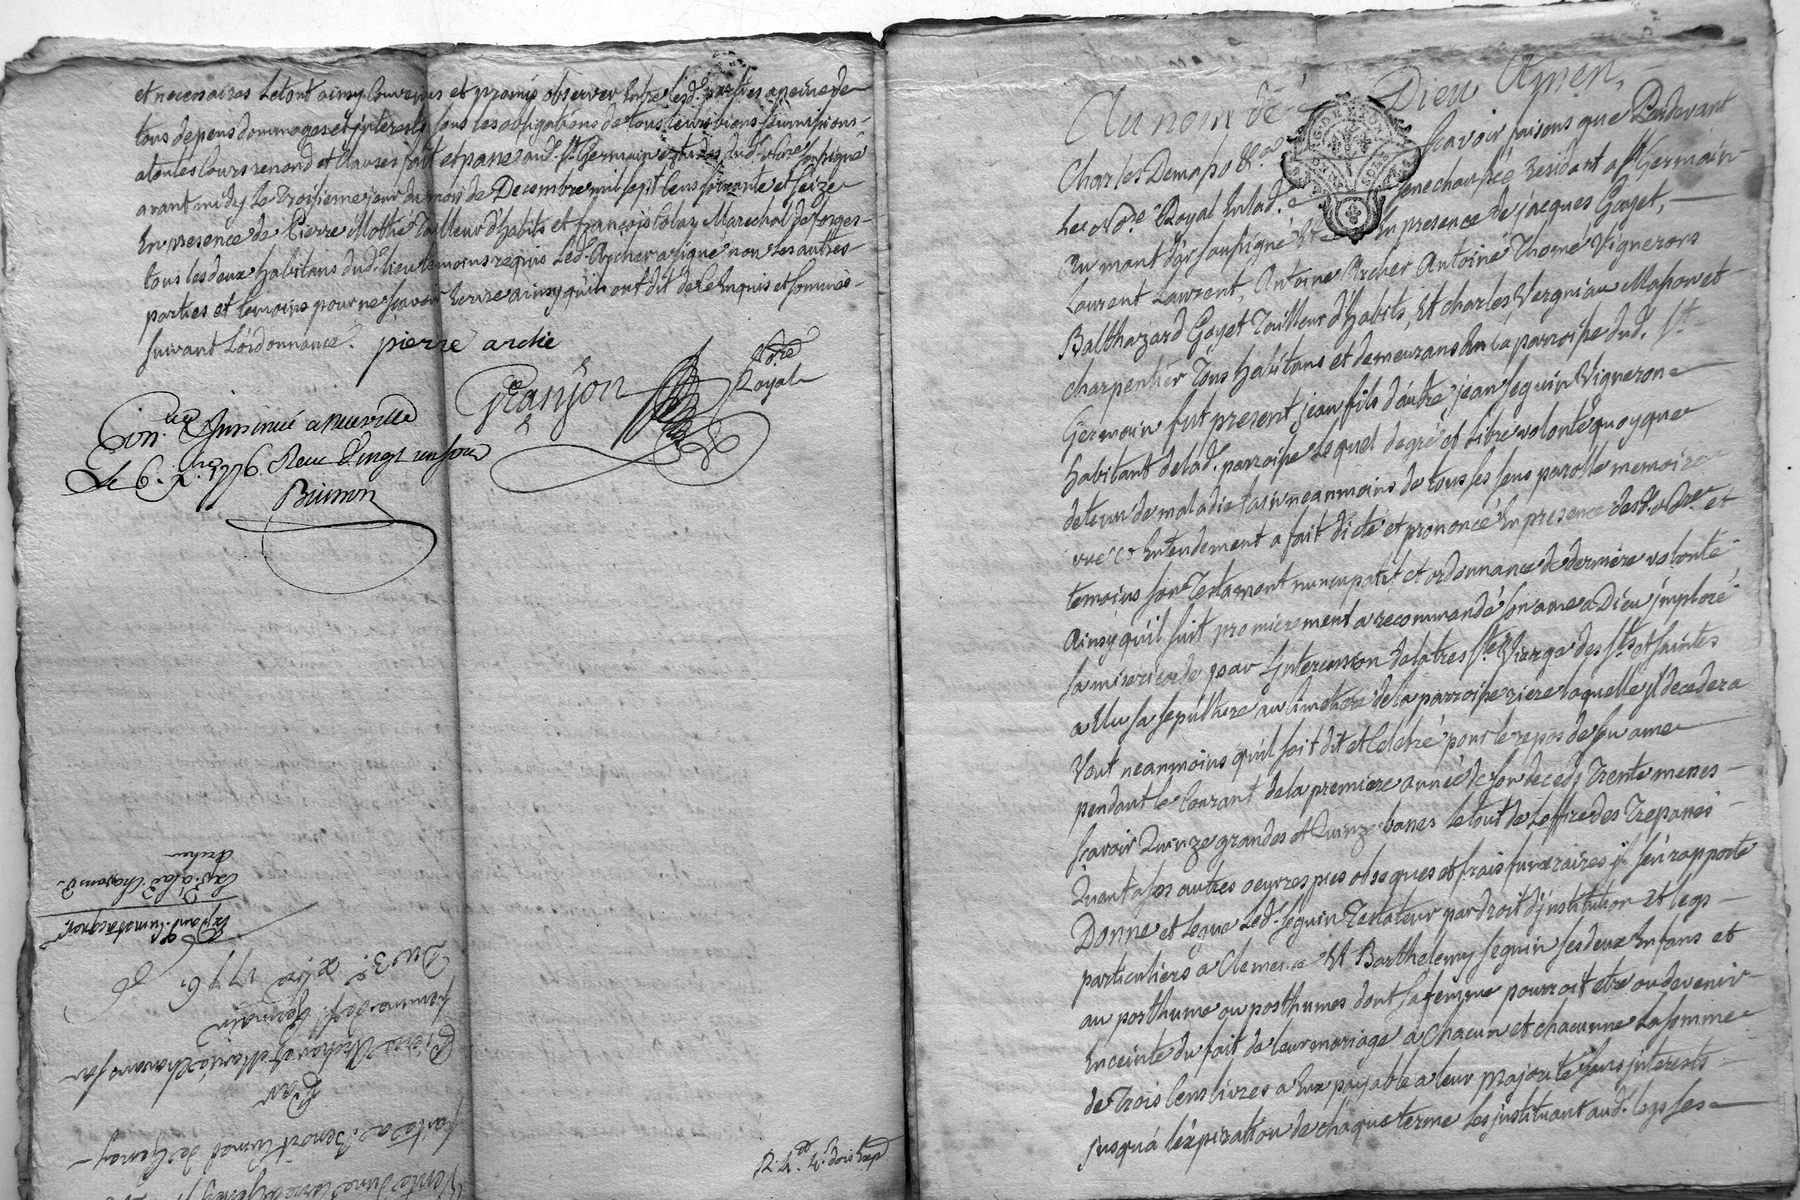 et necessaires Letout ainsy Convenus et promis observer Entre lesd. parties apeine de
tous depens dommages et jnterests sous les obligations de tous leurs biens soumissions
atoutes Cours renond et Clauses fait et passé aud. St. Germain etude dud. No.re soussigné
avant midy Le troisieme jour du mois de Decembre mil sept Cens soixante et seize
En presence de Pierre Mothe Tailleur d'habits et françois Colas Marechal de forges
tous les deux habitans dud. lieu temoins requis Led. Archer a signé non les autres
parties et temoins pour ne scavoir Ecrire ainsy qu'ils ont dit de Ce Enquis et sommés
suivant L'ordonnance. pierre archie
Granjon No.re Royal
Con.lé & Jnsinué a neuville
Le 6. x.bre 1776. Receu Vingt un sous
Brimon
R. 4. 4. dois Exp.
Vente d'une terre
faitte a Benoit Lumet de Genay
Par
Pierre Archer et Marie Chavane sa
femme de St. Germain
Du 3.e xbre 1776.
Expond.
Archer
Au nom de Dieu Amen,
scavoir faisons que Pardevant
Charles Demapo
Le No.re Royal En lad. senechaussée Residant a St. Germain
Au mont d'or soussigné Et En presence de jacques Goyet,
Laurent Laurent, Antoine Archer Antoine Thomé Vignerons
Balthazard Goyet Tailleur d'habits, Et charles Vergniau Masson et
charpentier Tous habitans et demeurans En la parroisse dud. St.
Germain fut present jean fils d'autre jean seguin Vigneron
habitant de lad. parroisse Lequel de gré et libre volonté quoyque
detenu de maladie sain neanmoins de tous ses sens parolle memoire
vuë et Entendement a fait dicté et prononcé En presence desd. No.re et
temoins son Testament nuncupatif et ordonnance de derniere volonté
Ainsy qu'il suit premierement a recommandé son ame a Dieu jmploré
sa misericorde par L'jntercession de la tres S.te Vierge des S.ts et saintes
a Elu sa sepulture au Cimetiere de la parroisse riere laquelle jl decedera
Veut neanmoins qu'il soit dit et Celebré pour le repos de son ame
pendant le Courant de la premiere année de son deceds Trente messes
scavoir Quinze grandes et Quinze basses Le tout de Loffice des Trepassés
Quant a ses autres oeuvres pies obseques et frais funeraires jl s'en rapporte
Donne et Legue Led. seguin Testateur par droit d'jnstitution Et legs
particuliers a Clemence Et Barthelemy seguin ses deux Enfans et
au posthume ou posthumes dont sa femme pourroit etre ou devenir
Enceinte du fait de leur mariage a Chacun et chacunne La somme
de Trois Cens livres a Eux payable a leur majorité sans jnterests
jusqu'a l'expiration de chaque terme Les jnstituant aud. legs ses